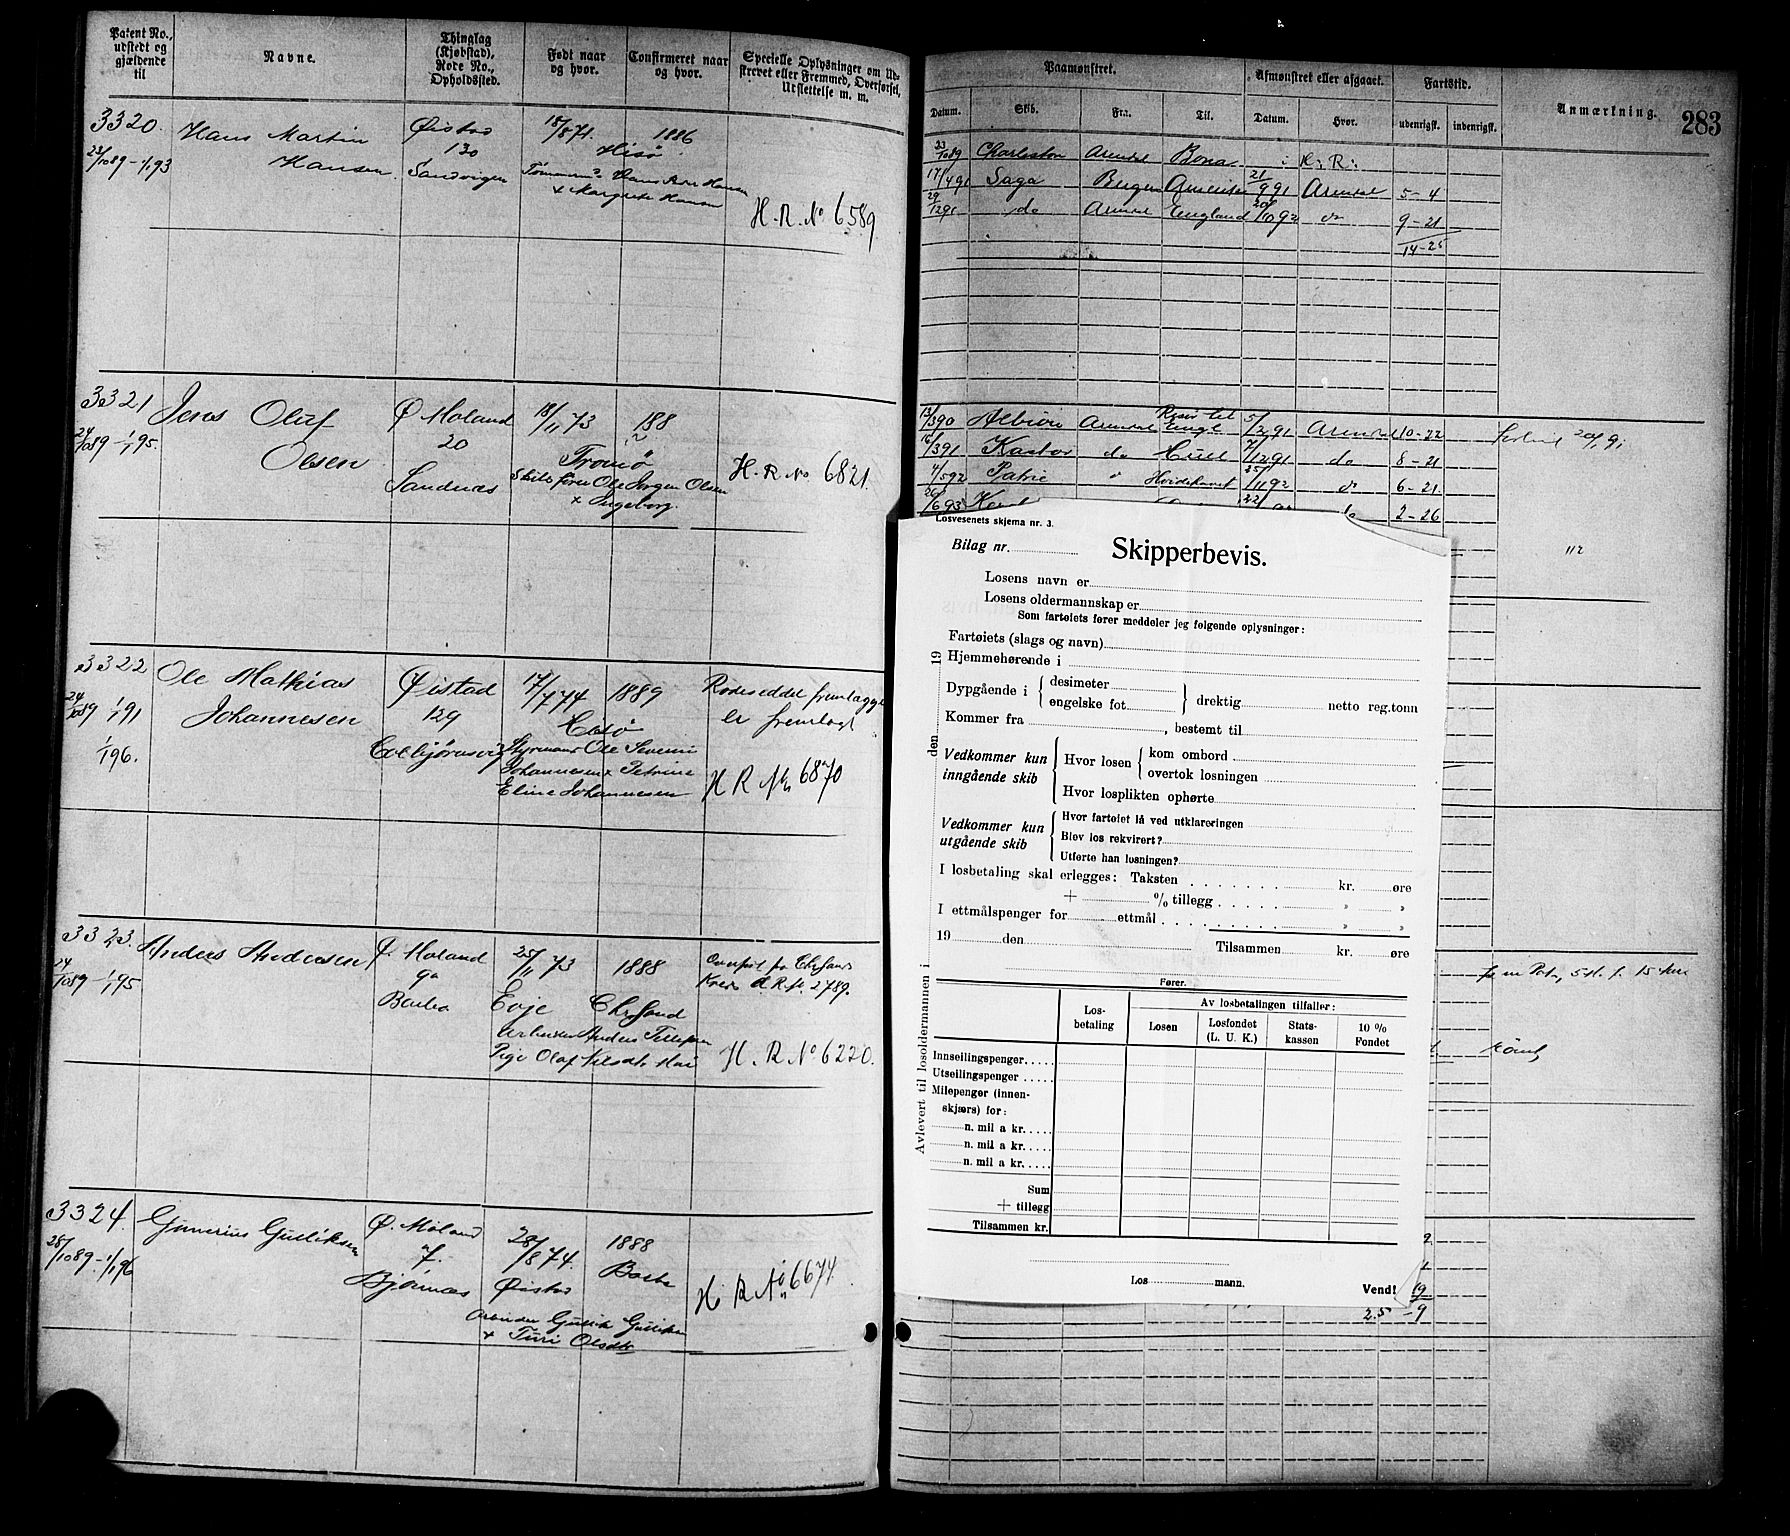 Patent No., udstedt og gjældende til
Navne.
Thinglag (Kjøbstad), Rode No., Opholdssted.
Født naar og hvor.
Confirmeret naar og hvor.
Specielle Oplysninger om Udskrevet eller Fremmed, Overførsel, Udslettelse m. m.
3320.
Hans Martin
Hansen
23/10 89 - 1/1 93
Øistad
130
Sandvigen
18/8 71.
1886
Hisø
H. R. No 6589
3321
Jens Oluf
Olsen
24/10 89 - 1/1 95.
Ø Moland
20
Sandnæs
18/11 73
188
Tromø
Ole Jørgen Olsen
x Ingeborg.
H. R. No 6821.
3322
Ole Mathias
Johannesen
24/10 89 1/1 91
1/1 96.
Øistad
129
17/7 74
1889
Hisø
Styrmand Ole Severin
Johannesen x Petrine
Eline Johannesen
Rodeseddel fremlægges
er fremlagt
H R No 6870
3323.
Anders Andersen
24/10 89 - 1/1 95
Ø. Moland
9a
Barbo
25/11 73
1888
Evje
Chrsand
H. R. No 6220.
3324.
Gunerius Gulliksen
28/10 89 - 1/1 96
Ø. Moland
7.
Bjørnæs
28/8 74.
1888
Øistad
Barbo
Arbeider Gullik Gulliksen
x Turi Olsdtr
H R No 6674
Paamønstret.
Afmønstret eller afgaaet.
Fartstid.
Anmærkning.
283
Datum.
Skib.
Fra.
Til.
Datum.
Hvor.
udenrigsk.
indenrigsk.
23/10 89 Charleston Arendal Bona H: R:
17/4 91 Saga Bergen Amerika 21/9 91 Arendal 5-4
29/12 91 do Arendal England 20/10 92 do 9-21
14-25
13/3 90 Albion Arendal Engl 5/2 91 Arendal 10-22
16/3 91 Kastor do Hull 7/12 91 do 8-21
4/5 92 Patric do Hvidehavet 25/11 92 do 6-21.
26/6 93 2-26
112
Losvesenets skjema nr. 3.
Bilag nr.
Skipperbevis.
Losens navn er
Losens oldermannskap er
Som fartøiets fører meddeler jeg følgende oplysninger:
Fartøiets (slags og navn)
Hjemmehørende i
Dypgående i { desimeter
engelske fot } drektig netto reg.tonn
Kommer fra , bestemt til
Vedkommer kun inngående skib
Hvor losen { kom ombord
overtok losningen
Hvor losplikten ophørte
Vedkommer kun utgående skib
Hvor fartøiet lå ved utklareringen
Blev los rekvirert?
Utførte han losningen?
I losbetaling skal erlegges: Taksten kr. øre
+ % tillegg " "
I ettmålspenger for ettmål " "
19 den Tilsammen kr. øre
Fører.
Avlevert til losoldermannen i den 19
Losbetaling
Av losbetalingen tilfaller:
Losen
Losfondet (L. U. K.)
Statskassen
10 % Fondet
Innseilingspenger
Utseilingspenger
Milepenger (innenskjærs) for:
n. mil a kr.
n. mil a kr.
n. mil a kr.
Sum
+ tillegg
Tilsammen kr.
Los mann.
Vend!
25 - 9